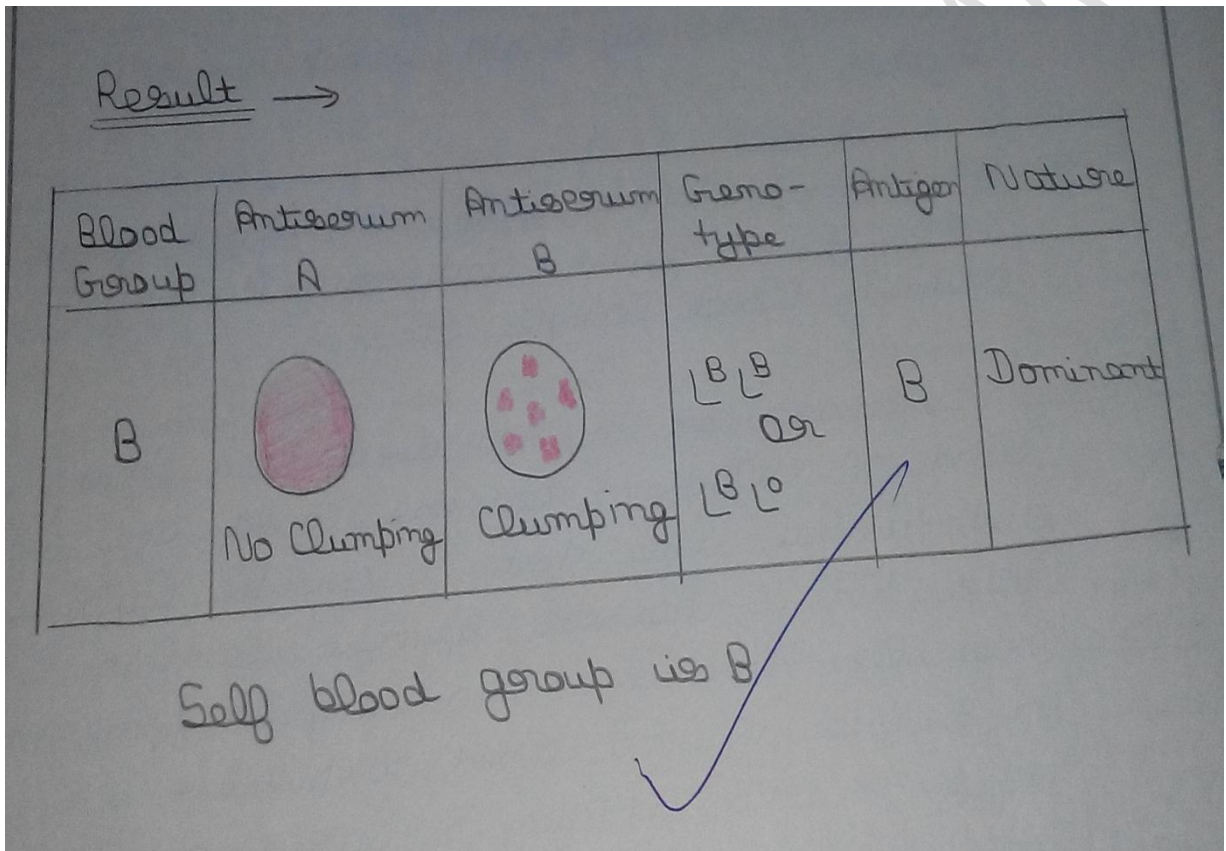 Result →
Blood Group
Antiserum A
Antiserum B
Geno-type
Antigen
Nature
B
No Clumping
Clumping
L^B L^B
or
L^B L^o
B
Dominant
Self blood group is B